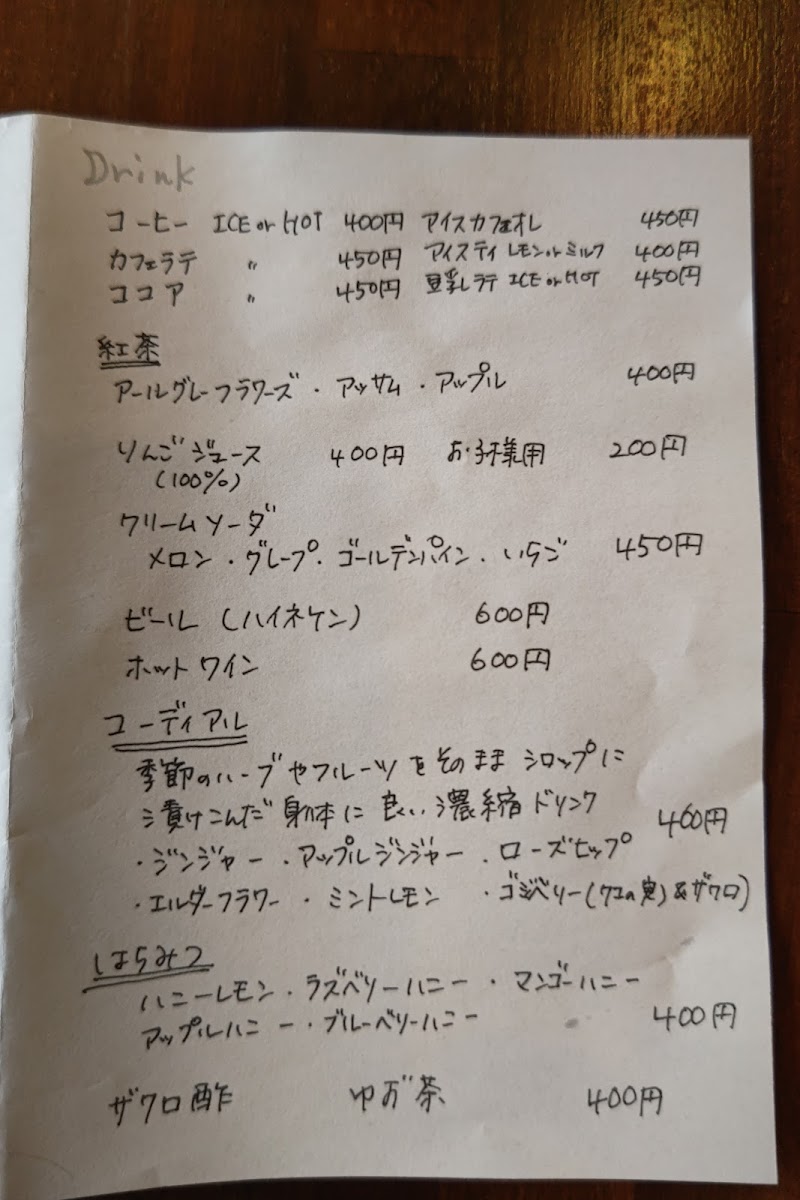 Drink
コーヒー ICE or HOT 400円 アイスカフェオレ 450円
カフェラテ 〃 450円 アイスティ レモンorミルク 400円
ココア 〃 450円 豆乳ラテ ICE or HOT 450円
紅茶
アールグレーフラワーズ・アッサム・アップル 400円
りんごジュース 400円 お子様用 200円
(100%)
クリームソーダ
メロン・グレープ・ゴールデンパイン・いちご 450円
ビール (ハイネケン) 600円
ホットワイン 600円
コーディアル
季節のハーブやフルーツをそのままシロップに
漬けこんだ身体に良い濃縮ドリンク 460円
・ジンジャー ・アップルジンジャー ・ローズヒップ
・エルダーフラワー ・ミントレモン ・ゴジベリー(クコの実)&ザクロ)
はちみつ
ハニーレモン・ラズベリーハニー・マンゴーハニー
アップルハニー・ブルーベリーハニー 400円
ザクロ酢 ゆず茶 400円